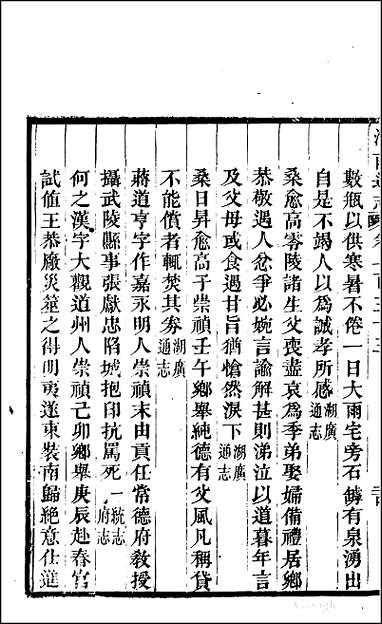 數瓶以供寒暑不倦一日大雨宅旁石罅有泉湧出
自是不竭人以為誠孝所感湖廣通志
桑愈高零陵諸生父喪盡哀為季弟娶孀備禮居鄉
恭敬遇人忿爭必婉言諭解甚則涕泣以道暮年言
及父母或食遇甘旨猶愴然淚下湖廣通志
桑日昇愈高子崇禎壬午鄉舉純德有父風凡稱貸
不能償者輒焚其券湖廣通志
蔣道亨字作嘉永明人崇禎末由貢任常德府教授
攝武陵縣事張獻忠陷城抱印抗罵死一統志府志
何之漢字大觀道州人崇禎己卯鄉舉庚辰赴春官
試值王恭廠災筮之得明夷遂束裝南歸絕意仕進